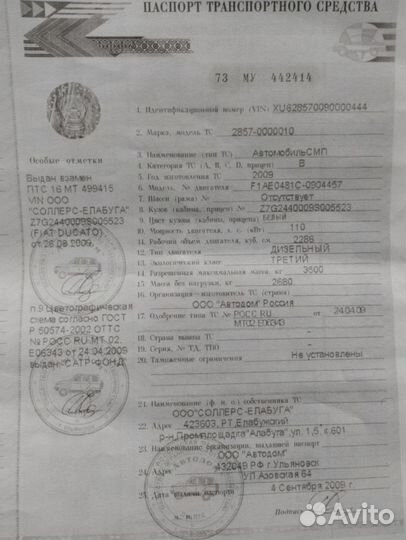 ПАСПОРТ ТРАНСПОРТНОГО СРЕДСТВА
73 МУ 442414
1. Идентификационный номер (VIN) XU628570090000444
2. Марка, модель ТС 2857-0000010
3. Наименование (тип ТС) АвтомобильСМП
4. Категория ТС (A, B, C, D, прицеп) B
5. Год изготовления ТС 2009
6. Модель, № двигателя F1AE0481C-0904457
7. Шасси (рама) № Отсутствует
8. Кузов (кабина, прицеп) № Z7G2440009S005523
9. Цвет кузова (кабины, прицепа) БЕЛЫЙ
10. Мощность двигателя, л. с. (кВт) 110
11. Рабочий объем двигателя, куб. см 2286
12. Тип двигателя ДИЗЕЛЬНЫЙ
13. Экологический класс ТРЕТИЙ
14. Разрешенная максимальная масса, кг 3500
15. Масса без нагрузки, кг 2680
16. Организация - изготовитель ТС (страна)
ООО "Автодом" Россия
17. Одобрение типа ТС № РОСС RU. от 24.04.09
МТ02.Е06343
18. Страна вывоза ТС
19. Серия, № ТД, ТПО
20. Таможенные ограничения Не установлены
21. Наименование (ф. и. о.) собственника ТС
ООО"СОЛЛЕРС-ЕЛАБУГА"
22. Адрес 423603, РТ,Елабужский
р-н,Промплощадка"Алабуга",ул.1,5, к.601
23. Наименование организации, выдавшей паспорт
ООО "Автодом"
24. Адрес 432049 РФ г.Ульяновск
УЛ Азовская 84
25. Дата выдачи паспорта 4 Сентябрь 2009 г.
М. П. Подпись
Особые отметки
Выдан взамен
ПТС 16 МТ 499415
VIN ООО
"СОЛЛЕРС-ЕЛАБУГА"
Z7G2440009S005523
(FIAT DUCATO)
от 26.08.2009
п.9 Цветографическая
схема согласно ГОСТ
Р 50574-2002 ОТТС
№РОСС RU.МТ.02.
Е06343 от 24.04.2009
выдан "САТР-ФОНД"
АВТОДОМ
Avito